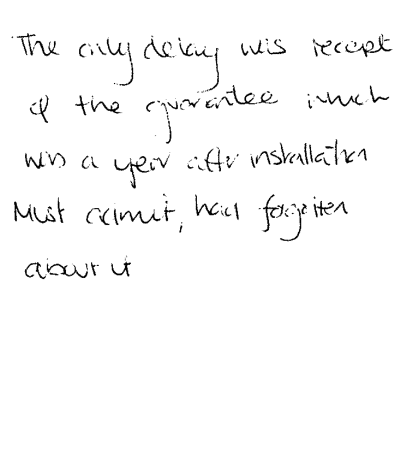 The only delay was receipt
of the guarantee which
was a year after installation
Must admit, had forgotten
about it